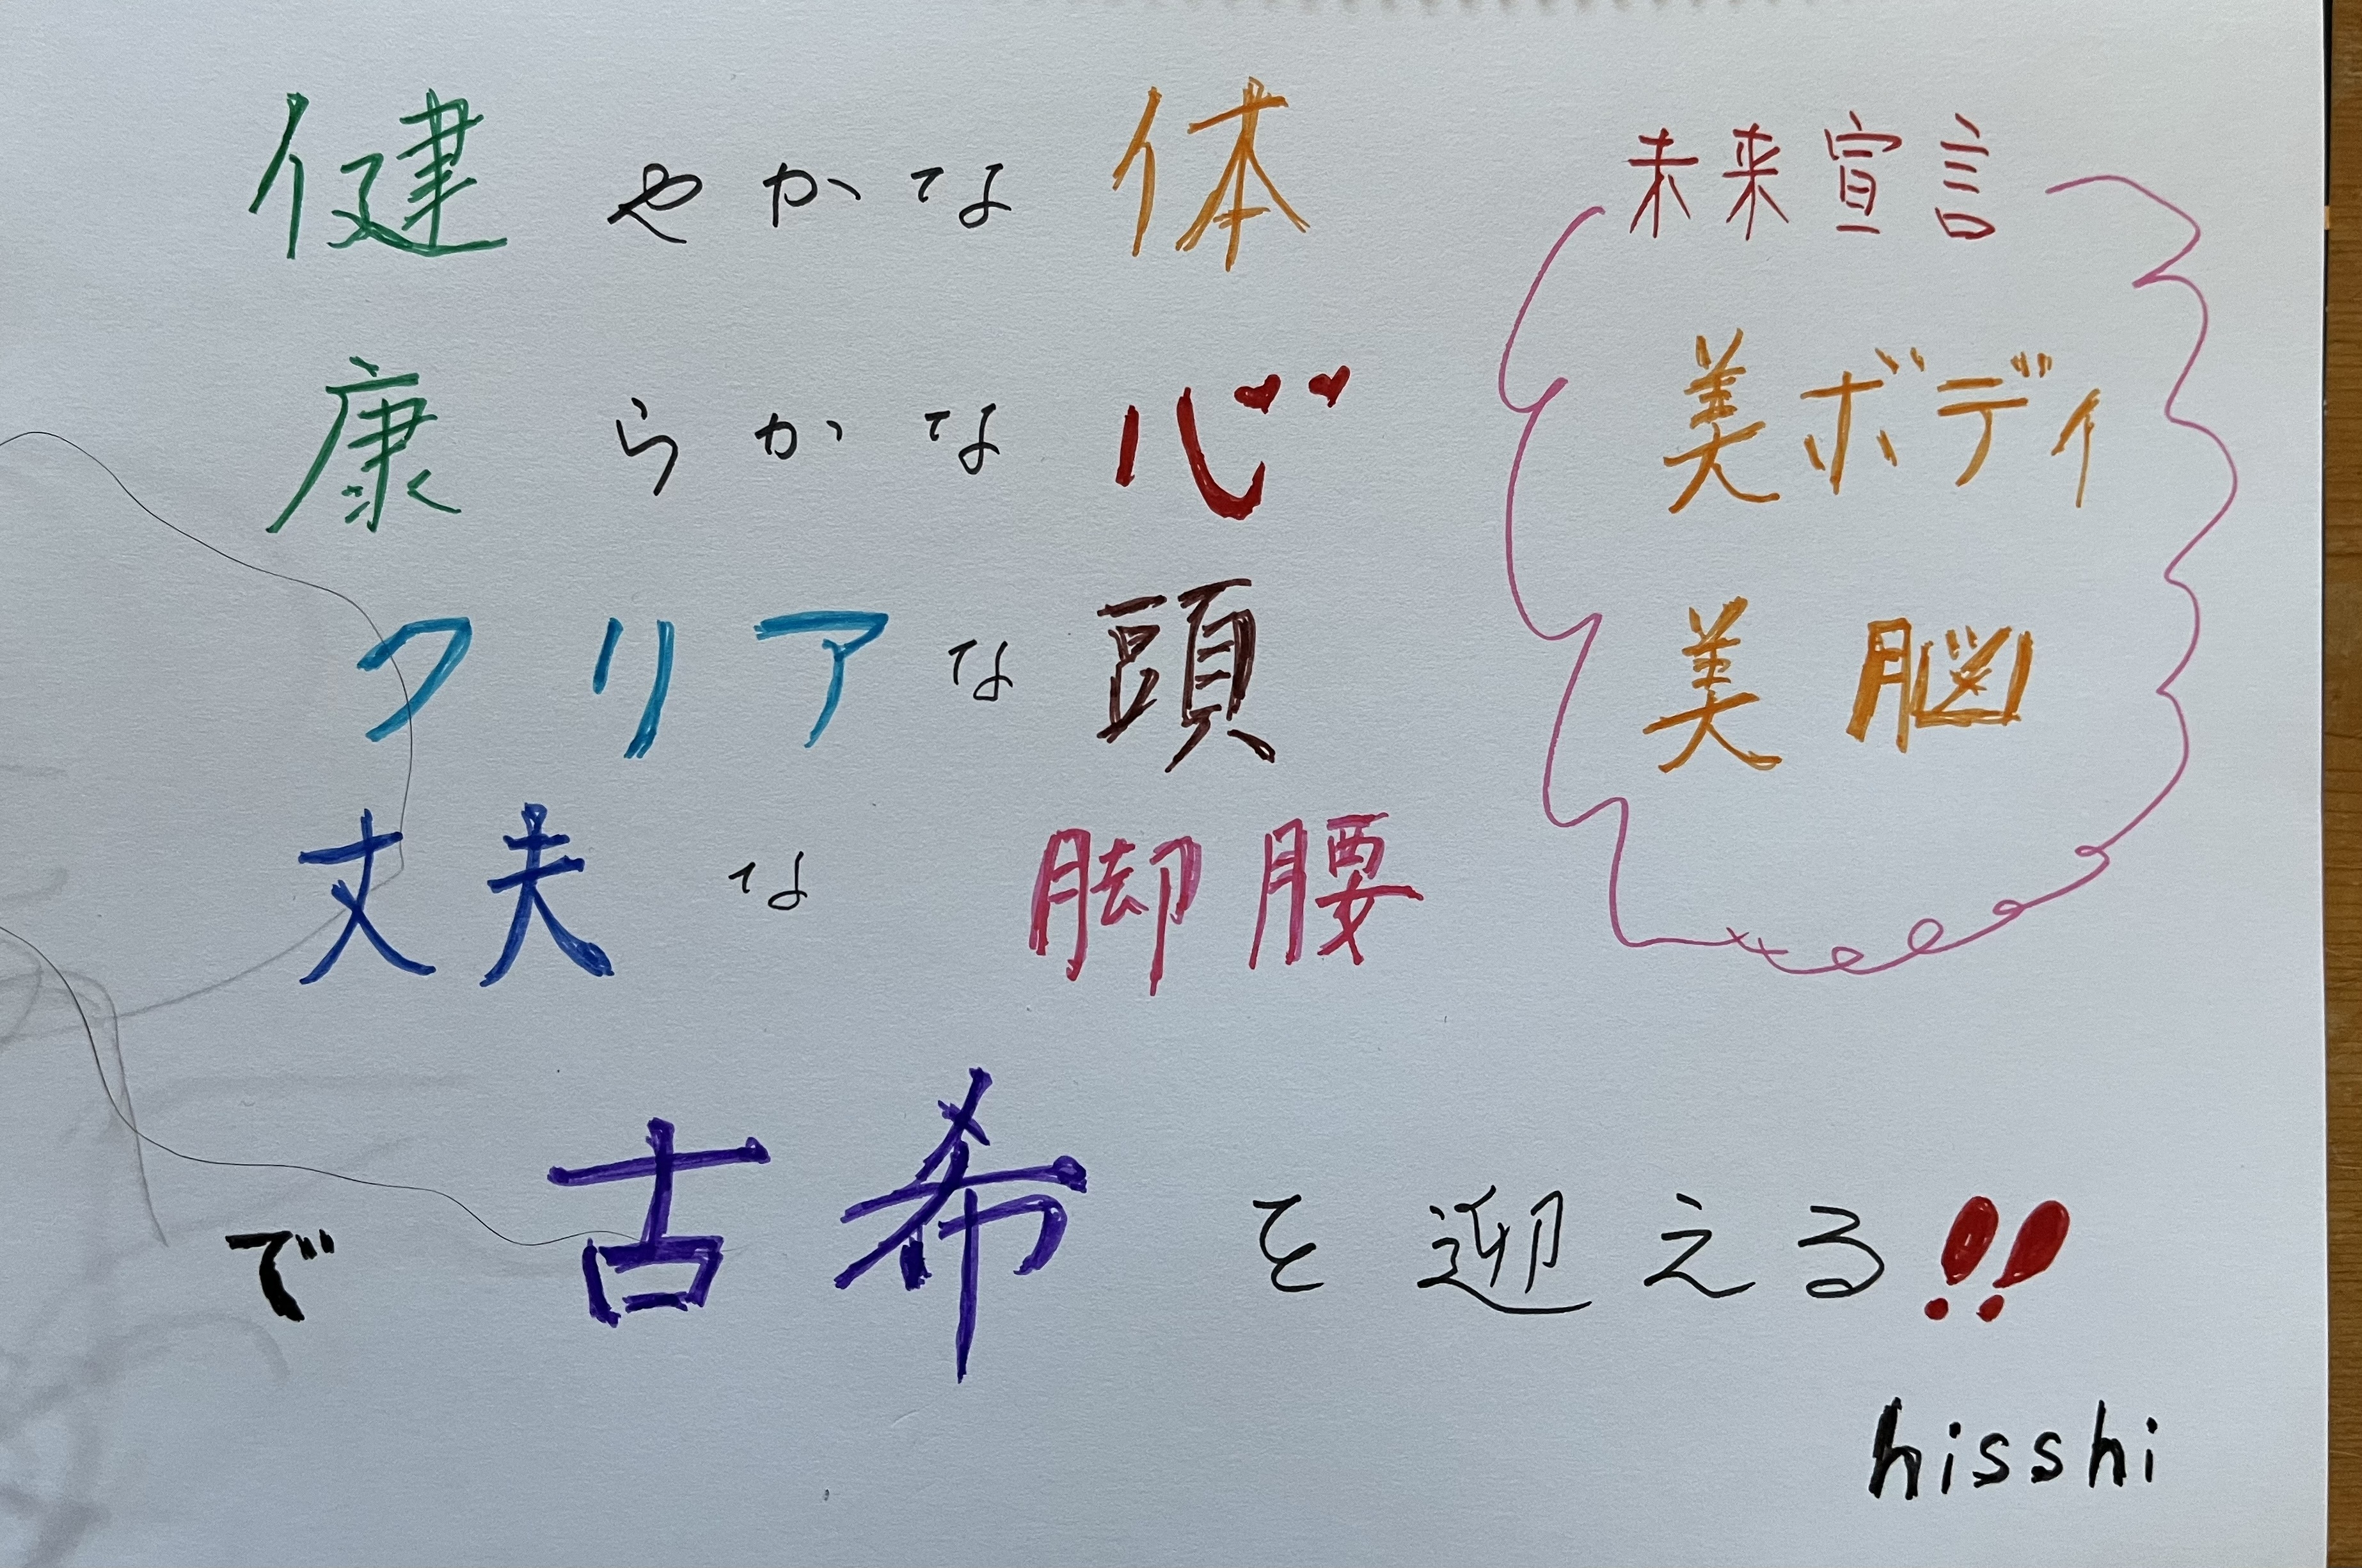 健やかな体
康らかな心
クリアな頭
丈夫な脚腰
で古希を迎える!!
未来宣言
美ボディ
美脳
hisshi